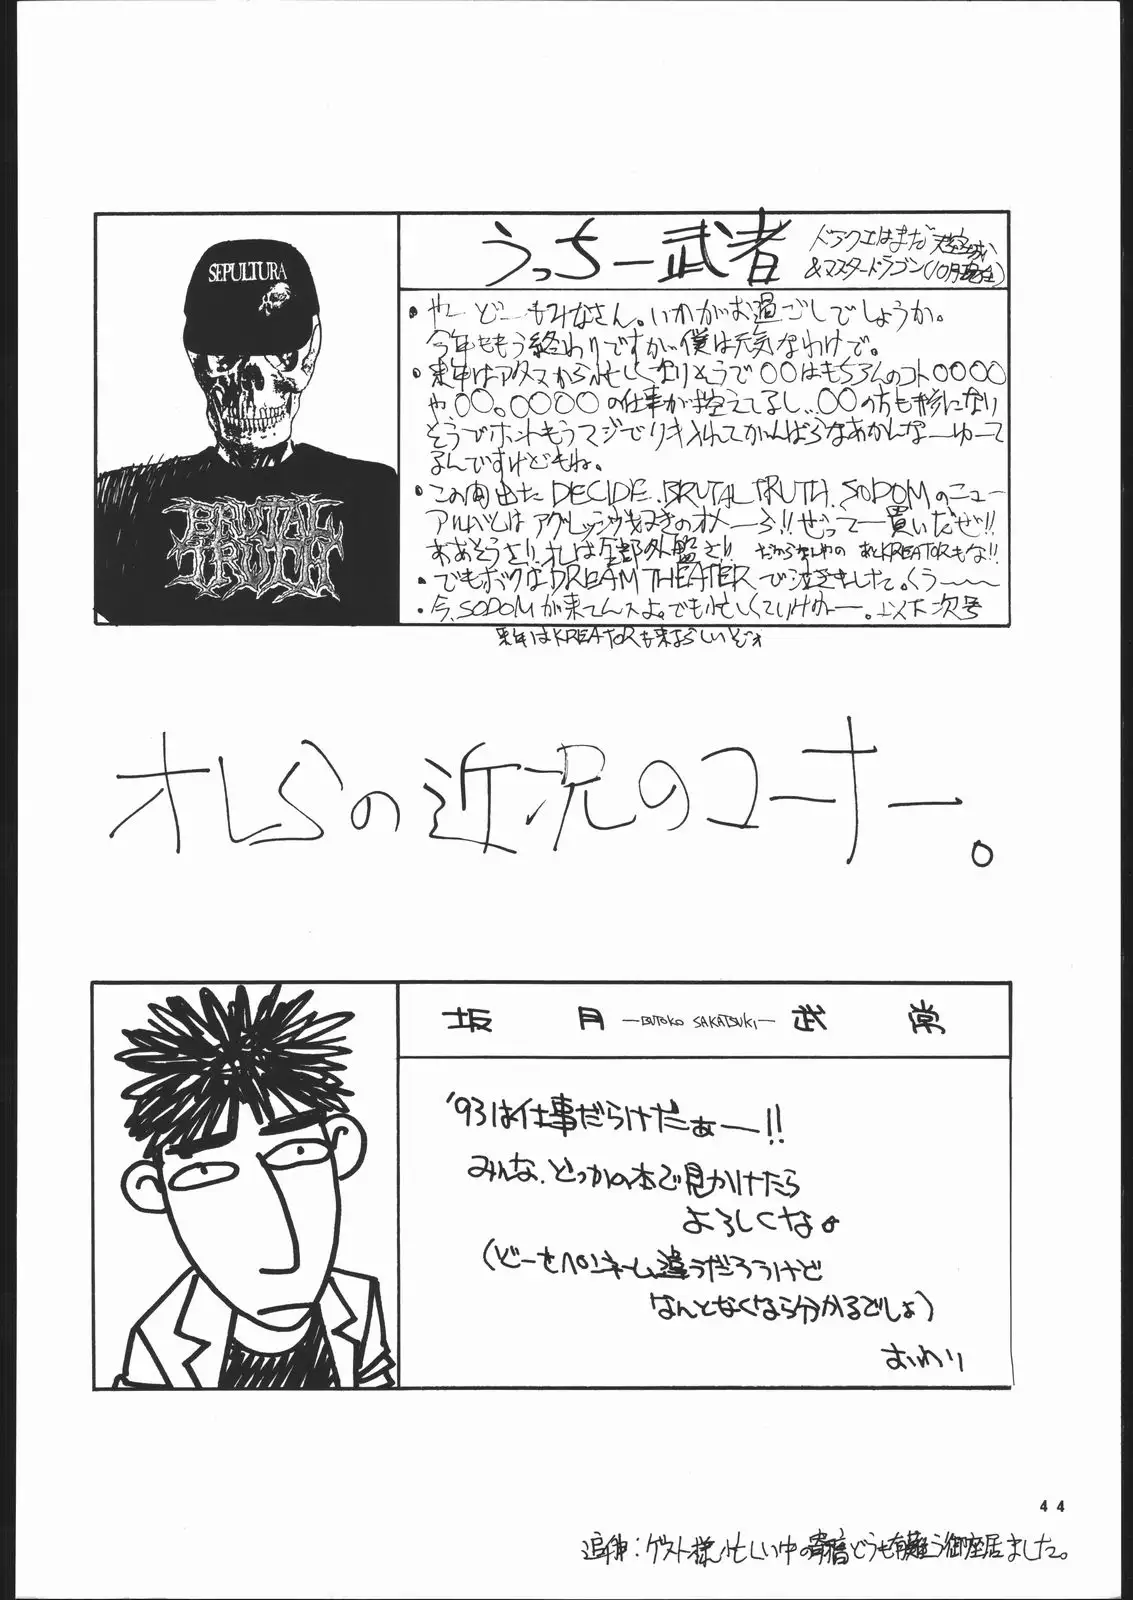 うっちー武者
ドラクエはまだ天空城
&マスタードラゴン(10月現在)
SEPULTURA
BRUTAL
TRUTH
・やー どーもみなさん。いかがお過ごしでしょうか。
今年ももう終わりですが僕は元気なわけで。
・来年はアタマから忙しくなりそうで〇〇はもちろんのコト〇〇〇〇
や、〇〇。〇〇〇〇の仕事が控えてるし、〇〇の方も
そうでホントもうマジでリキ入れてがんばらなあかんなーゆーて
るんですけどもね。
・この間出た DECIDE、BRUTAL TRUTH、SODOMのニュー
アルバムとはアグレッシヴ好きのオメーら!!ぜってー買いだぜ!!
ああそうさ!!オレは全部外盤さ!! あとKREATORもな!!
・でもボクはDREAM THEATERで泣きました。くう〜〜
・今、SODOMが来てんスよ。でも忙しくていけねー。以下次号
来年はKREATORも来るらしいぞ
オレらの近況のコーナー。
坂月 —BUTOKO SAKATSUKI— 武常
'93は仕事だらけだぁー!!
みんな、どっかの本で見かけたら
よろしくな。
(どーせペンネーム違うだろうけど
なんとなくなら分かるでしょ)
おわり
44
追伸:ゲスト様、忙しい中の寄稿どうも有難う御座居ました。